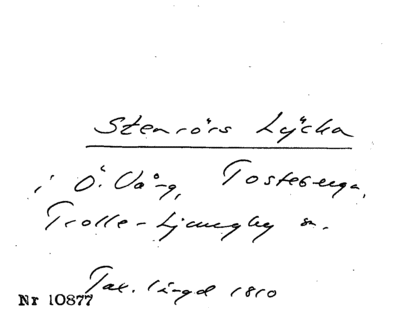 Stenrörs Lÿcka
i Ö. Vång, Tosteberga,
Trolle-Ljungby sn.
Tax. längd 1810
Nr 10877